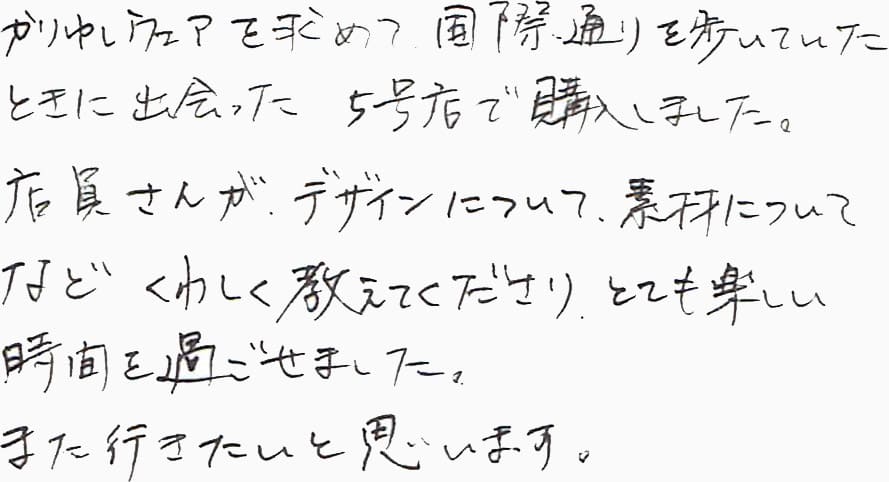 かりゆしウェアを求めて、国際通りを歩いていた
ときに出会った 5号店で購入しました。
店員さんが、デザインについて、素材について
など くわしく教えてくださり、とても楽しい
時間を過ごせました。
また行きたいと思います。